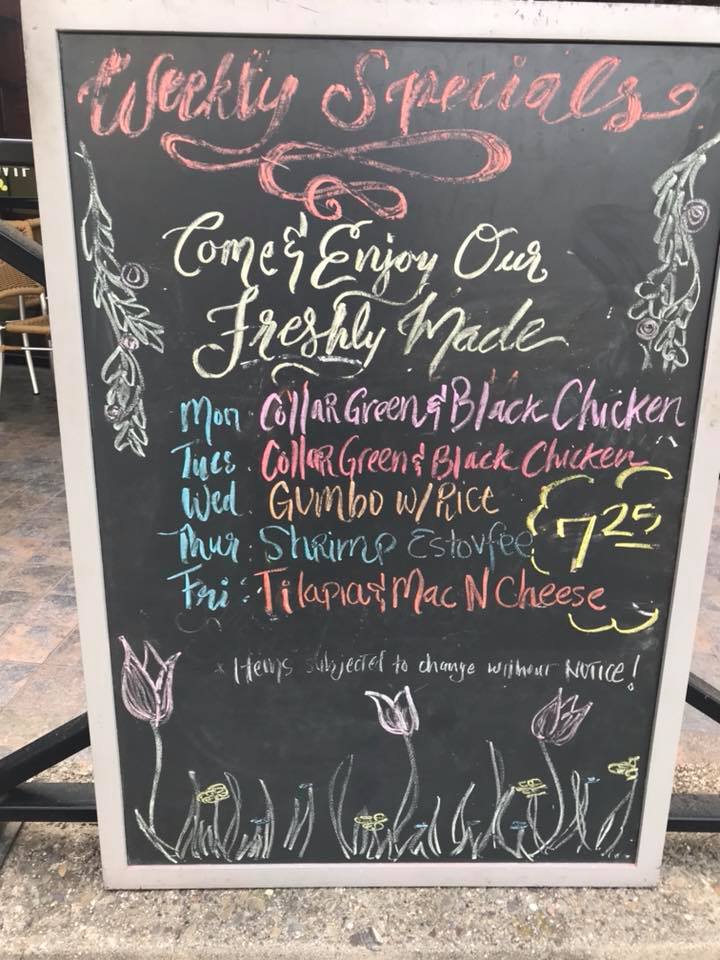 Weekly Specials
Come & Enjoy Our
Freshly Made
Mon: Collar Green & Black Chicken
Tues: Collar Green & Black Chicken
Wed: Gumbo w/Rice
Thur: Shrimp Estouffee
Fri: Tilapia & Mac N Cheese
7 25
* Items subjected to change without NOTICE!